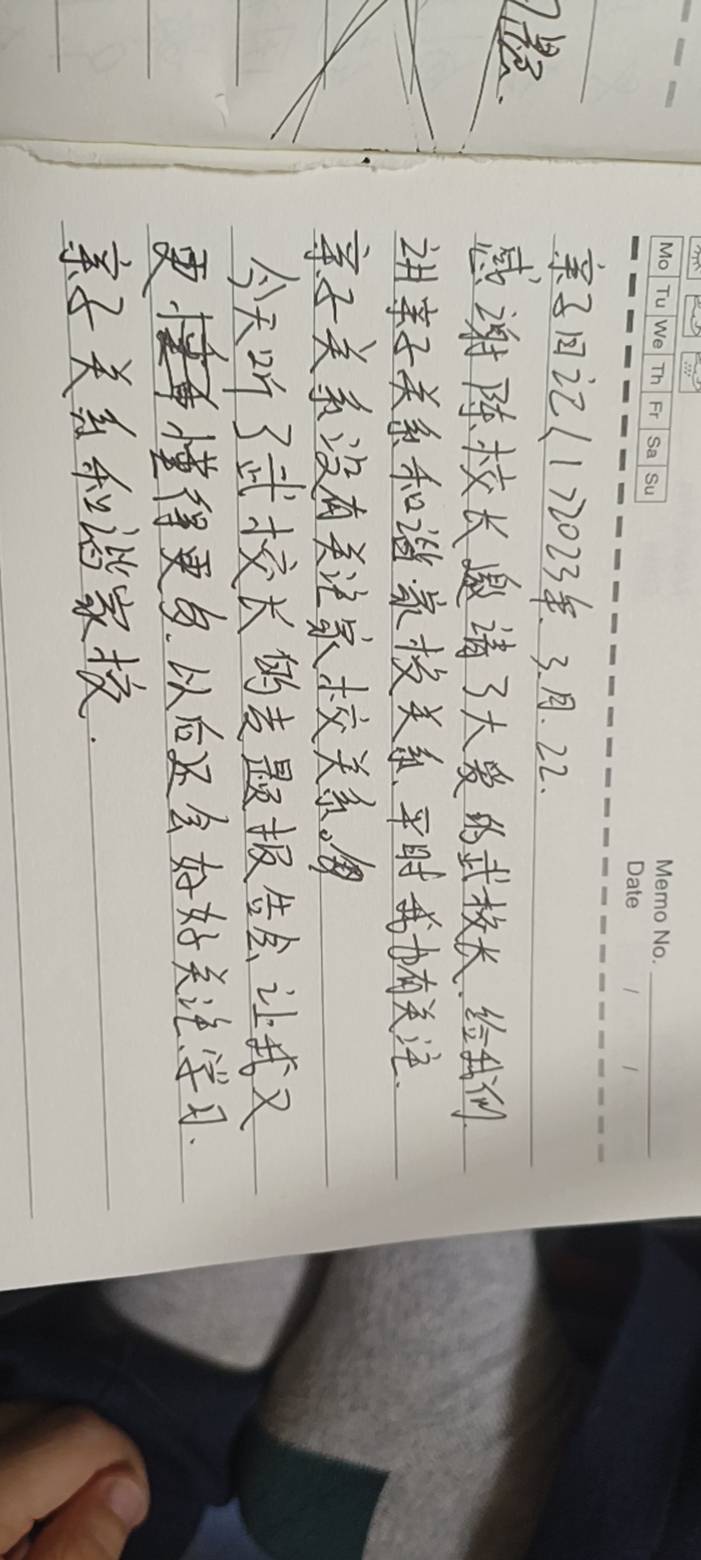 Memo No.
Mo Tu We Th Fr Sa Su
Date / /
亲子日记<1>2023年.3.月.22.
感谢陈校长邀请了大爱的武校长.给我们
讲亲子关系和谐.家校关系.平时我也有关注.
亲子关系没有关注家校关系。
今天听了武校长的专题报告会,让我又
更懂得更多.以后还会好好关注.学习.
亲子关系和谐家校.